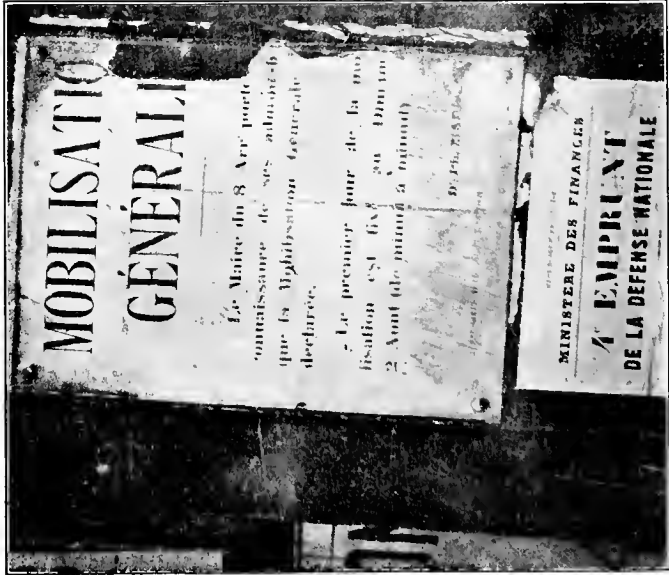 MOBILISATIO
GÉNÉRALE
Le Maire du 8 Arr porte
connaissance de ses administ
que la Mobilisation Générale
déclarée.
Le premier jour de la mo
lisation est fixé au Diman
2 Août (de minuit à minuit)
MINISTERE DES FINANCES
4e EMPRUNT
DE LA DÉFENSE NATIONALE